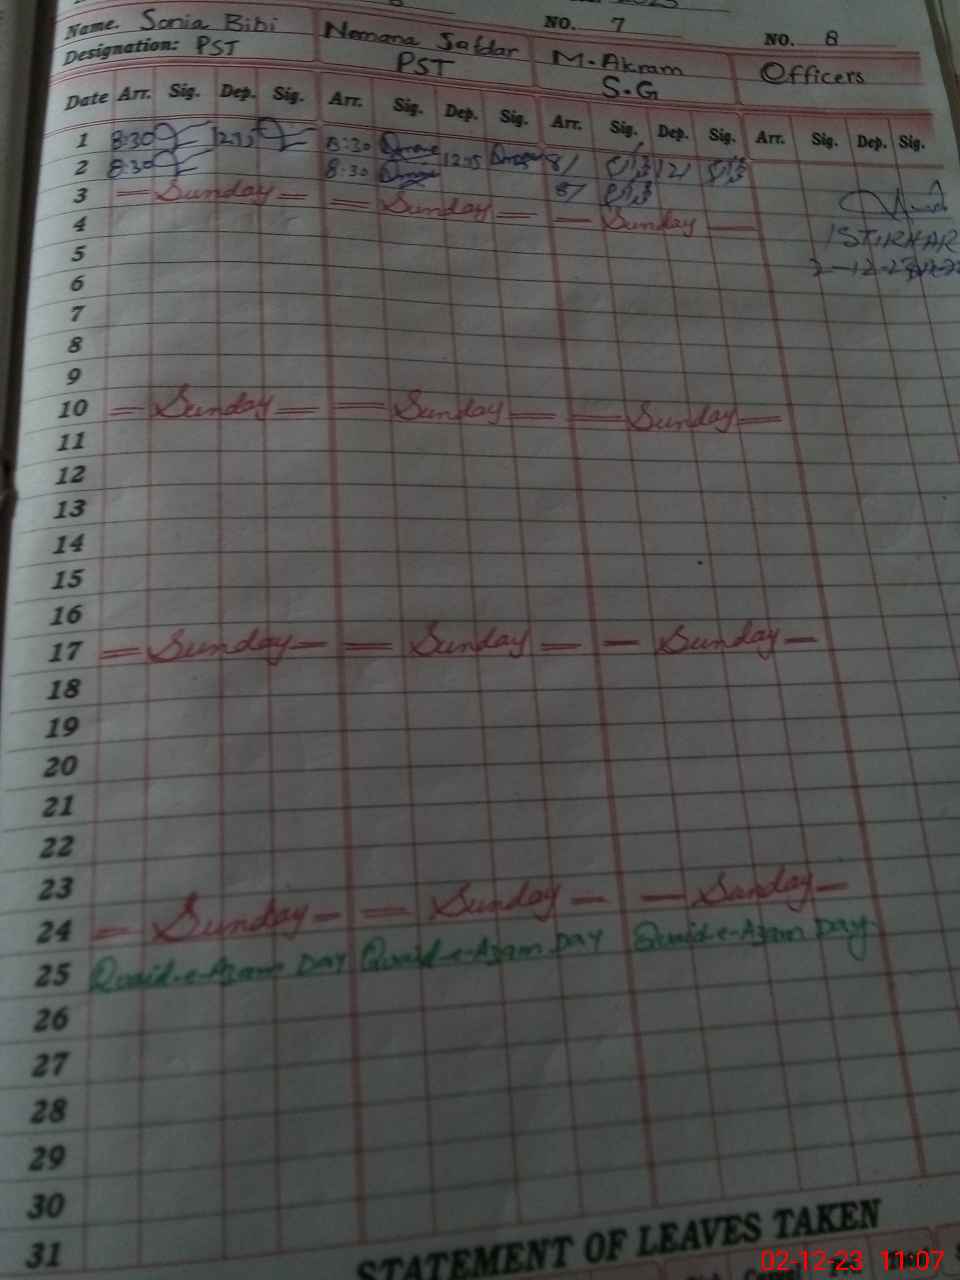 2023
NO. 7
NO. 8
Name. Sonia Bibi
Nemana Safdar
M. Akram
Officers
Designation: PST
PST
S.G
Date Arr. Sig. Dep. Sig. Arr. Sig. Dep. Sig. Arr. Sig. Dep. Sig. Arr. Sig. Dep. Sig.
1 8:30 12:15 8:30 12:15 8/ 12/
2 8:30 8:30 8/
3 Sunday Sunday Sunday
4
ISTIKHAR
5
2-12-23
6
7
8
9
10 Sunday Sunday Sunday
11
12
13
14
15
16
17 Sunday Sunday Sunday
18
19
20
21
22
23
24 Sunday Sunday Sunday
25 Quaid-e-Azam DAY Quaid-e-Azam DAY Quaid-e-Azam DAY
26
27
28
29
30
31
STATEMENT OF LEAVES TAKEN
02-12-23 11:07